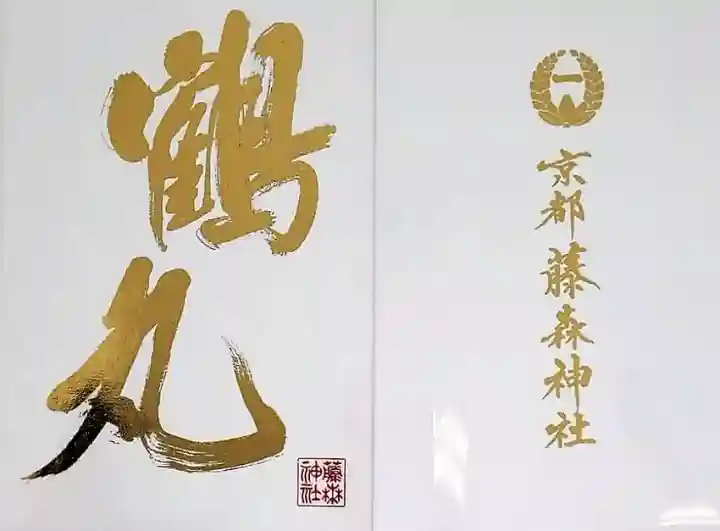 鶴丸
藤森
神社
一
京都藤森神社